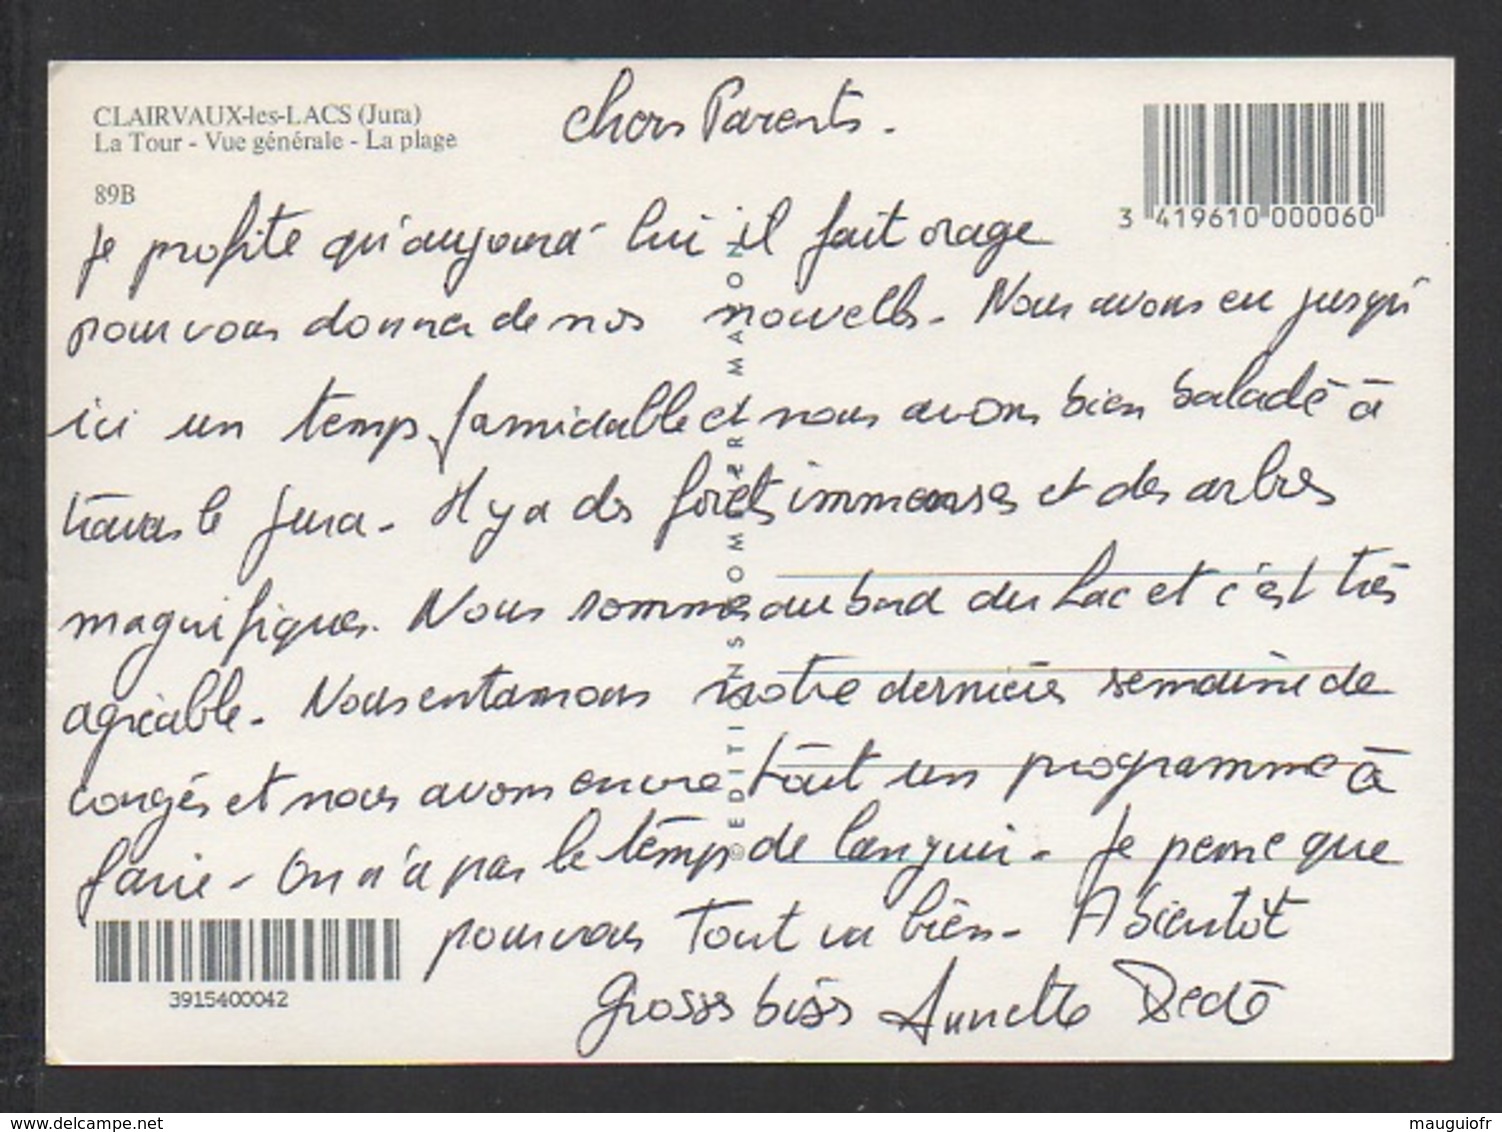 CLAIRVAUX-les-LACS (Jura)
La Tour - Vue générale - La plage
89B
3 419610 000060
Chers Parents.
Je profite qu'aujourd'hui il fait orage
pour vous donner de nos nouvelles. Nous avons eu jusqu'
ici un temps formidable et nous avons bien baladé à
travers le Jura. Il y a des forêts immenses et des arbres
magnifiques. Nous sommes au bord du Lac et c'est très
agréable. Nous entamons notre dernière semaine de
congés et nous avons encore tout un programme à
faire. On n'a pas le temps de languir. Je pense que
pour vous tout va bien. A bientôt
Grosses bises Annette Dédé
EDITIONS COMBIER MACON
3915400042
delcampe.net
mauguiofr